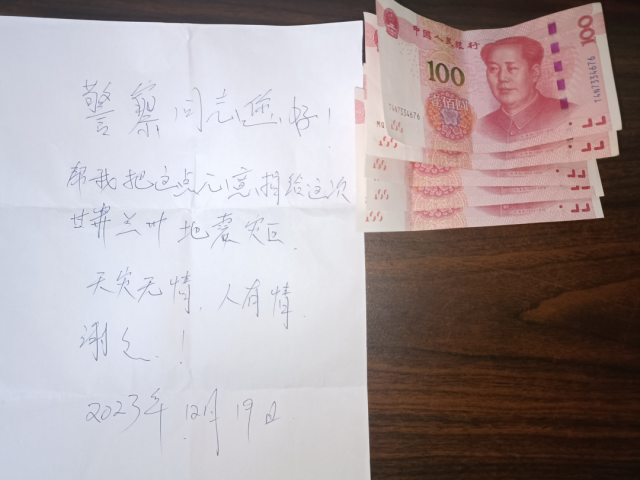 警察同志您好！
帮我把这点心意捐给这次
甘肃兰州地震灾区.
天灾无情.人有情
谢谢！
2023年12月19日
中国人民银行
100
100
壹佰圆
T4N7334676
T4N7334676